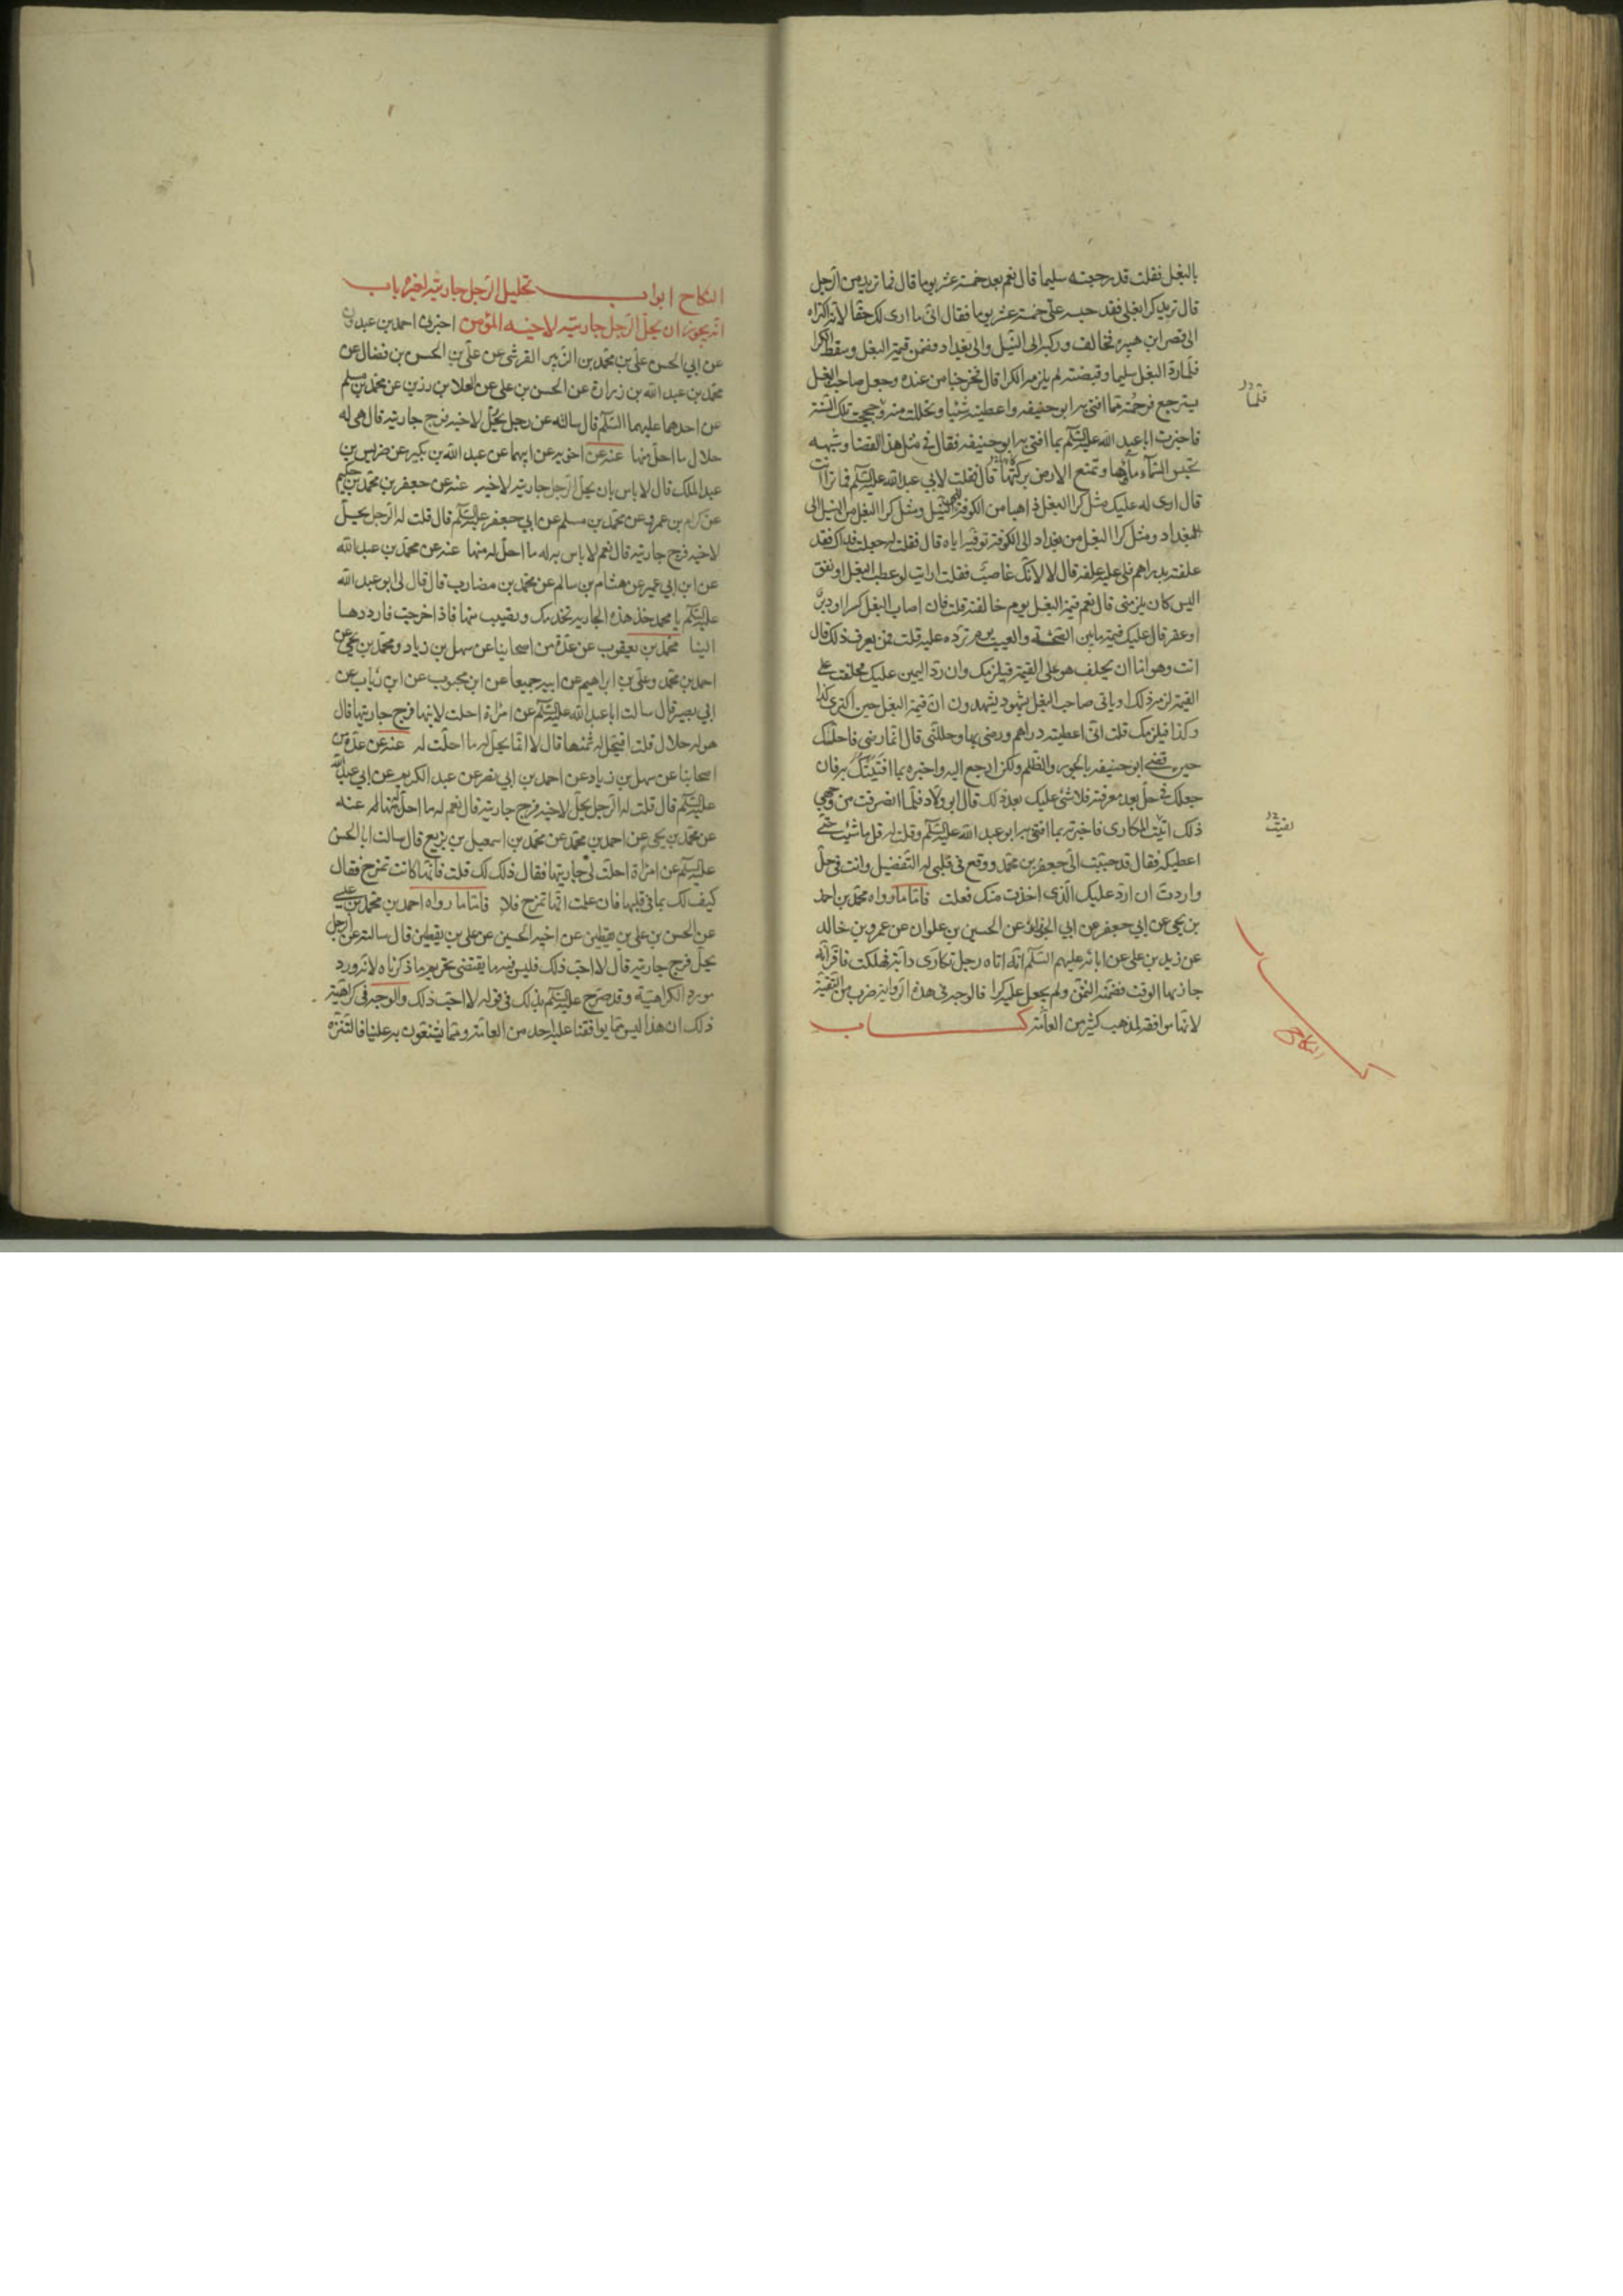 بالبغل فقلت قد رجعته سليما قال نعم بعد خمسة عشر يوما قال فما تريد من الرجل
قال نريد كرا بغلى فقد حبسه علىّ خمسة عشر يوما فقال انى ما ارى لك حقا لانه اكتراه
الى قصر ابن هبيرة فخالف وركبه الى النيل والى بغداد فضمن قيمة البغل وسقط الكرا
فلما ردّ البغل سليما وقبضته لم يلزمه الكرا قال فخرجنا من عنده وجعل صاحب البغل
يسترجع فرحمته مما افتى به ابو حنيفه واعطيته شيئا وتحللت منه وحججت تلك السنة
فاخبرت ابا عبد الله عليه السلام بما افتى به ابو حنيفه فقال فى مثل هذا القضا وشبهه
تحبس السّماء ماؤها وتمنع الارض بركتها قال فقلت لابي عبد الله عليه السلام فما ترا انت
قال ارى له عليك مثل كرا البغل ذاهبا من الكوفة الى النيل ومثل كرا البغل من النيل الى
بغداد ومثل كرا البغل من بغداد الى الكوفة توفيه اياه قال فقلت له جعلت فداك فقد
علفته بدراهم فلى عليه علفه قال لا لانك غاصب فقلت ارايت لو عطب البغل او نفق
اليس كان يلزمنى قال نعم قيمة البغل يوم خالفته قلت فان اصاب البغل كسر او دبر
او عقر قال عليك قيمة ما بين الصحّة والعيب يوم تردّه عليه قلت فمن يعرف ذلك قال
انت وهو اما ان يحلف هو على القيمة فيلزمك وان ردّ اليمين عليك فحلفت على
القيمة لزمه ذلك او ياتى صاحب البغل بشهود يشهدون ان قيمة البغل حين اكترى كذا
وكذا فيلزمك قلت انى اعطيته دراهم ورضى بها وحللنى قال انما رضى فاحلك
حين قضى ابو حنيفه بالجور والظلم ولكن ارجع اليه واخبره بما افتيتك به فان
جعلك فى حلّ بعد معرفته فلا شئ عليك بعد ذلك قال ابو ولاد فلما انصرفت من وجهى
ذلك اتيت المكارى فاخبرته بما افتى به ابو عبد الله عليه السلام وقلت له قل ما شئت حتى
اعطيكه فقال قد حببت الىّ جعفر بن محمد ووقع فى قلبى له التفضيل وانت فى حلّ
واردت ان اردّ عليك الذى اخذت منك فعلت فاما ما رواه محمد بن احمد
بن يحيى عن ابي جعفر عن ابي الجوزاء عن الحسين بن علوان عن عمرو بن خالد
عن زيد بن على عن ابائه عليهم السلام انه اتاه رجل تكارى دابة فهلكت فاقر انه
جاز بها الوقت فضمنه الثمن ولم يجعل عليه كرا فالوجه فى هذه الرواية ضرب من التقية
لانها موافقة لمذهب كثير من العامّة كتاب
النكاح
النكاح ابواب تحليل الرجل جاريته لغيره باب
انه يجوز ان يحلّ الرجل جاريته لاخيه المؤمن اخبرنى احمد بن عبدون
عن ابي الحسن على بن محمد بن الزبير القرشى عن على بن الحسن بن فضال عن
محمد بن عبد الله بن زرارة عن الحسن بن على عن العلا بن رزين عن محمد بن مسلم
عن احدهما عليهما السلم قال سالته عن رجل يحلّ لاخيه فرج جاريته قال هى له
حلال ما احلّ منها عنه عن اخويه عن ابيهما عن عبد الله بن بكير عن ضريس بن
عبد الملك قال لا باس بان يحلّ الرجل جاريته لاخيه عنه عن جعفر بن محمد بن حكيم
عن كرام بن عمرو عن محمد بن مسلم عن ابي جعفر عليه السلام قال قلت له الرجل يحلّ
لاخيه فرج جاريته قال نعم لا باس به له ما احلّ له منها عنه عن محمد بن عبد الله
عن ابن ابي عمير عن هشام بن سالم عن محمد بن مضارب قال قال لى ابو عبد الله
عليه السلام يا محمد خذ هذه الجارية تخدمك وتصيب منها فاذا خرجت فارددها
الينا محمد بن يعقوب عن عدّة من اصحابنا عن سهل بن زياد ومحمد بن يحيى عن
احمد بن محمد وعلى بن ابراهيم عن ابيه جميعا عن ابن محبوب عن ابن رئاب عن
ابي بصير قال سالت ابا عبد الله عليه السلام عن امراة احلت لابنها فرج جاريتها قال
هو له حلال قلت افيحل له ثمنها قال لا انما يحلّ له ما احلّت له عنه عن عدّة من
اصحابنا عن سهل بن زياد عن احمد بن ابي نصر عن عبد الكريم عن ابي عبد الله
عليه السلام قال قلت له الرجل يحلّ لاخيه فرج جاريته قال نعم له ما احلّ له منها عنه
عن محمد بن يحيى عن احمد بن محمد عن محمد بن اسمعيل بن بزيع قال سالت ابا الحسن
عليه السلام عن امراة احلت لى جاريتها فقال ذلك لك قلت فانها كانت تمزح فقال
كيف لك بما فى قلبها فان علمت انها تمزح فلا فاما ما رواه احمد بن محمد بن عيسى
عن الحسن بن على بن يقطين عن اخيه الحسين عن على بن يقطين قال سالته عن الرجل
يحلّ فرج جاريته قال لا احبّ ذلك فليس فيه ما يقتضى تحريم ما ذكرناه لانه ورد
مورد الكراهية وقد صرح عليه السلام بذلك فى قوله لا احبّ ذلك والوجه فى كراهية
ذلك ان هذا ليس مما يوافقنا عليه احد من العامة ومما يشنعون به علينا فالتنزه